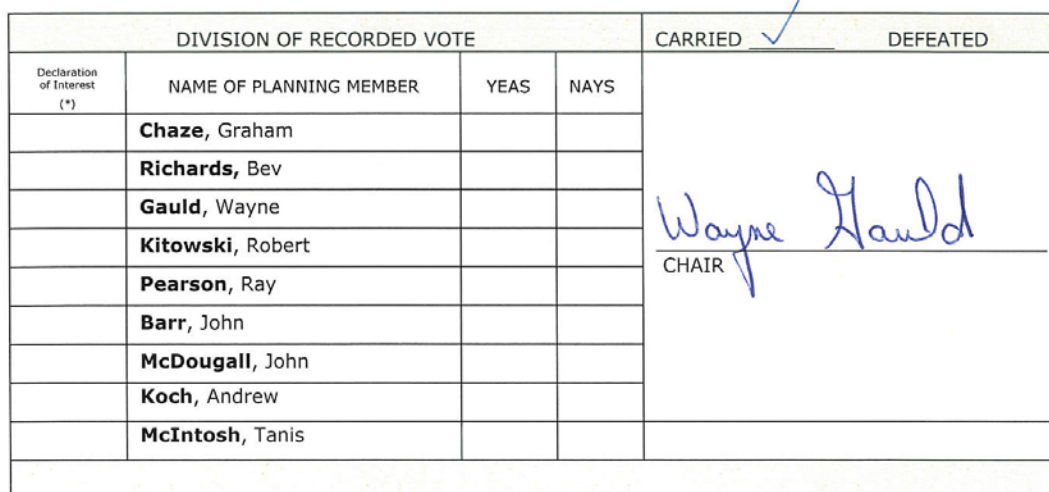 DIVISION OF RECORDED VOTE CARRIED ✓ DEFEATED
Declaration
of Interest
(*)
NAME OF PLANNING MEMBER YEAS NAYS
Chaze, Graham
Richards, Bev
Gauld, Wayne
Kitowski, Robert
Pearson, Ray
Barr, John
McDougall, John
Koch, Andrew
McIntosh, Tanis
Wayne Gauld
CHAIR